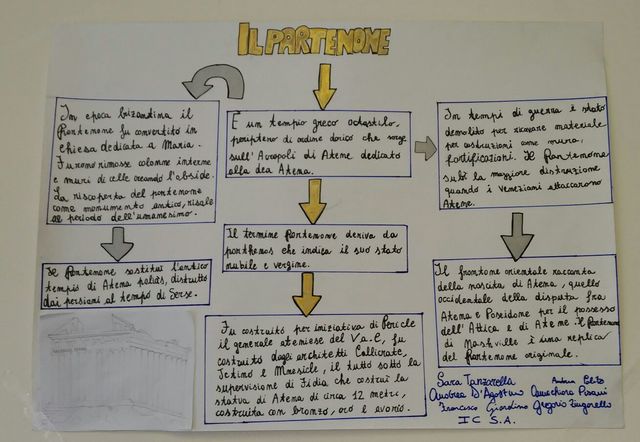 IL PARTENONE
In epoca bizantina il
Partenone fu convertito in
chiesa dedicata a Maria.
Furono rimosse colonne interne
e muri di celle creando l'abside.
La riscoperta del partenone
come monumento antico, risale
al periodo dell'umanesimo.
È un tempio greco octastilo,
periptero di ordine dorico che sorge
sull'Acropoli di Atene dedicato
alla dea Atena.
In tempi di guerra è stato
demolito per ricavare materiale
per costruzioni come mura,
fortificazioni. Il Partenone
subì la maggiore distruzione
quando i veneziani attaccarono
Atene.
Il termine Partenone deriva da
parthenos che indica il suo stato
nubile e vergine.
Il Partenone sostituì l'antico
tempio di Atena polias, distrutto
dai persiani al tempo di Serse.
Il frontone orientale racconta
della nascita di Atena, quello
occidentale della disputa fra
Atena e Poseidone per il possesso
dell'Attica e di Atene. Il Partenone
di Nashville è una replica
del Partenone originale.
Fu costruito per iniziativa di Pericle
il generale ateniese del V a.C, fu
costruito dagli architetti Callicrate,
Ictino e Mnesicle, il tutto sotto la
supervisione di Fidia che costruì la
statua di Atena di circa 12 metri,
costruita con bronzo, oro e avorio.
Sara Tanzarella
Andrea D'Agostino
Francesco Giordino Gregorio
IC S.A.